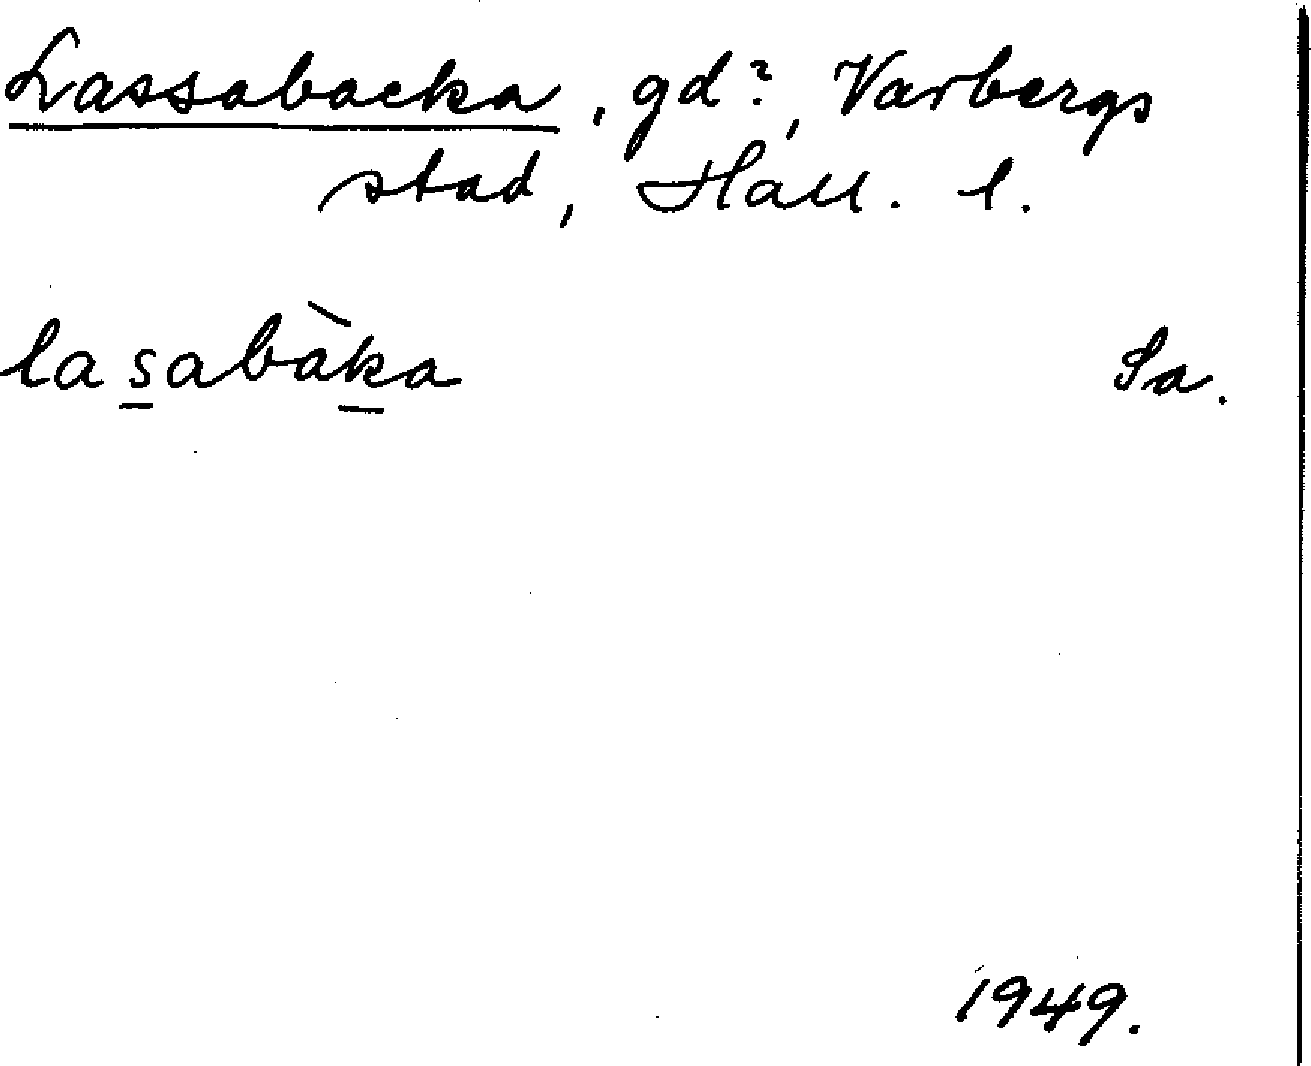 Lassabacka, gd?, Varbergs
stad, Hall. l.
lasabàka Sa.
1949.